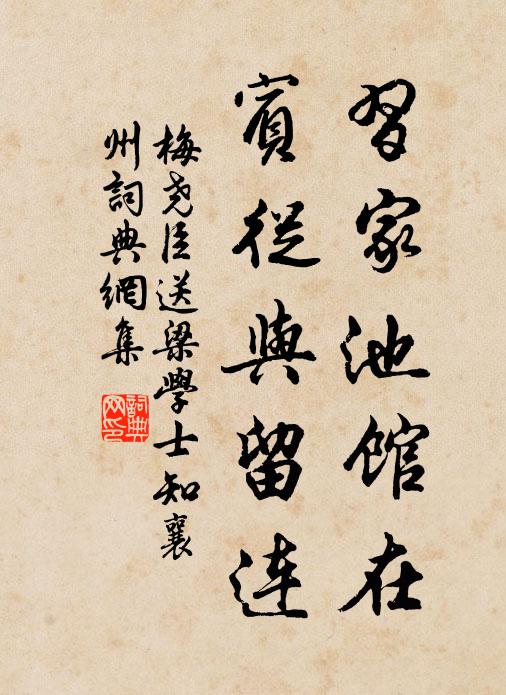 習家池馆在
賓從與留連
梅尧臣送梁學士知襄
州詞典網集
詞典
网印